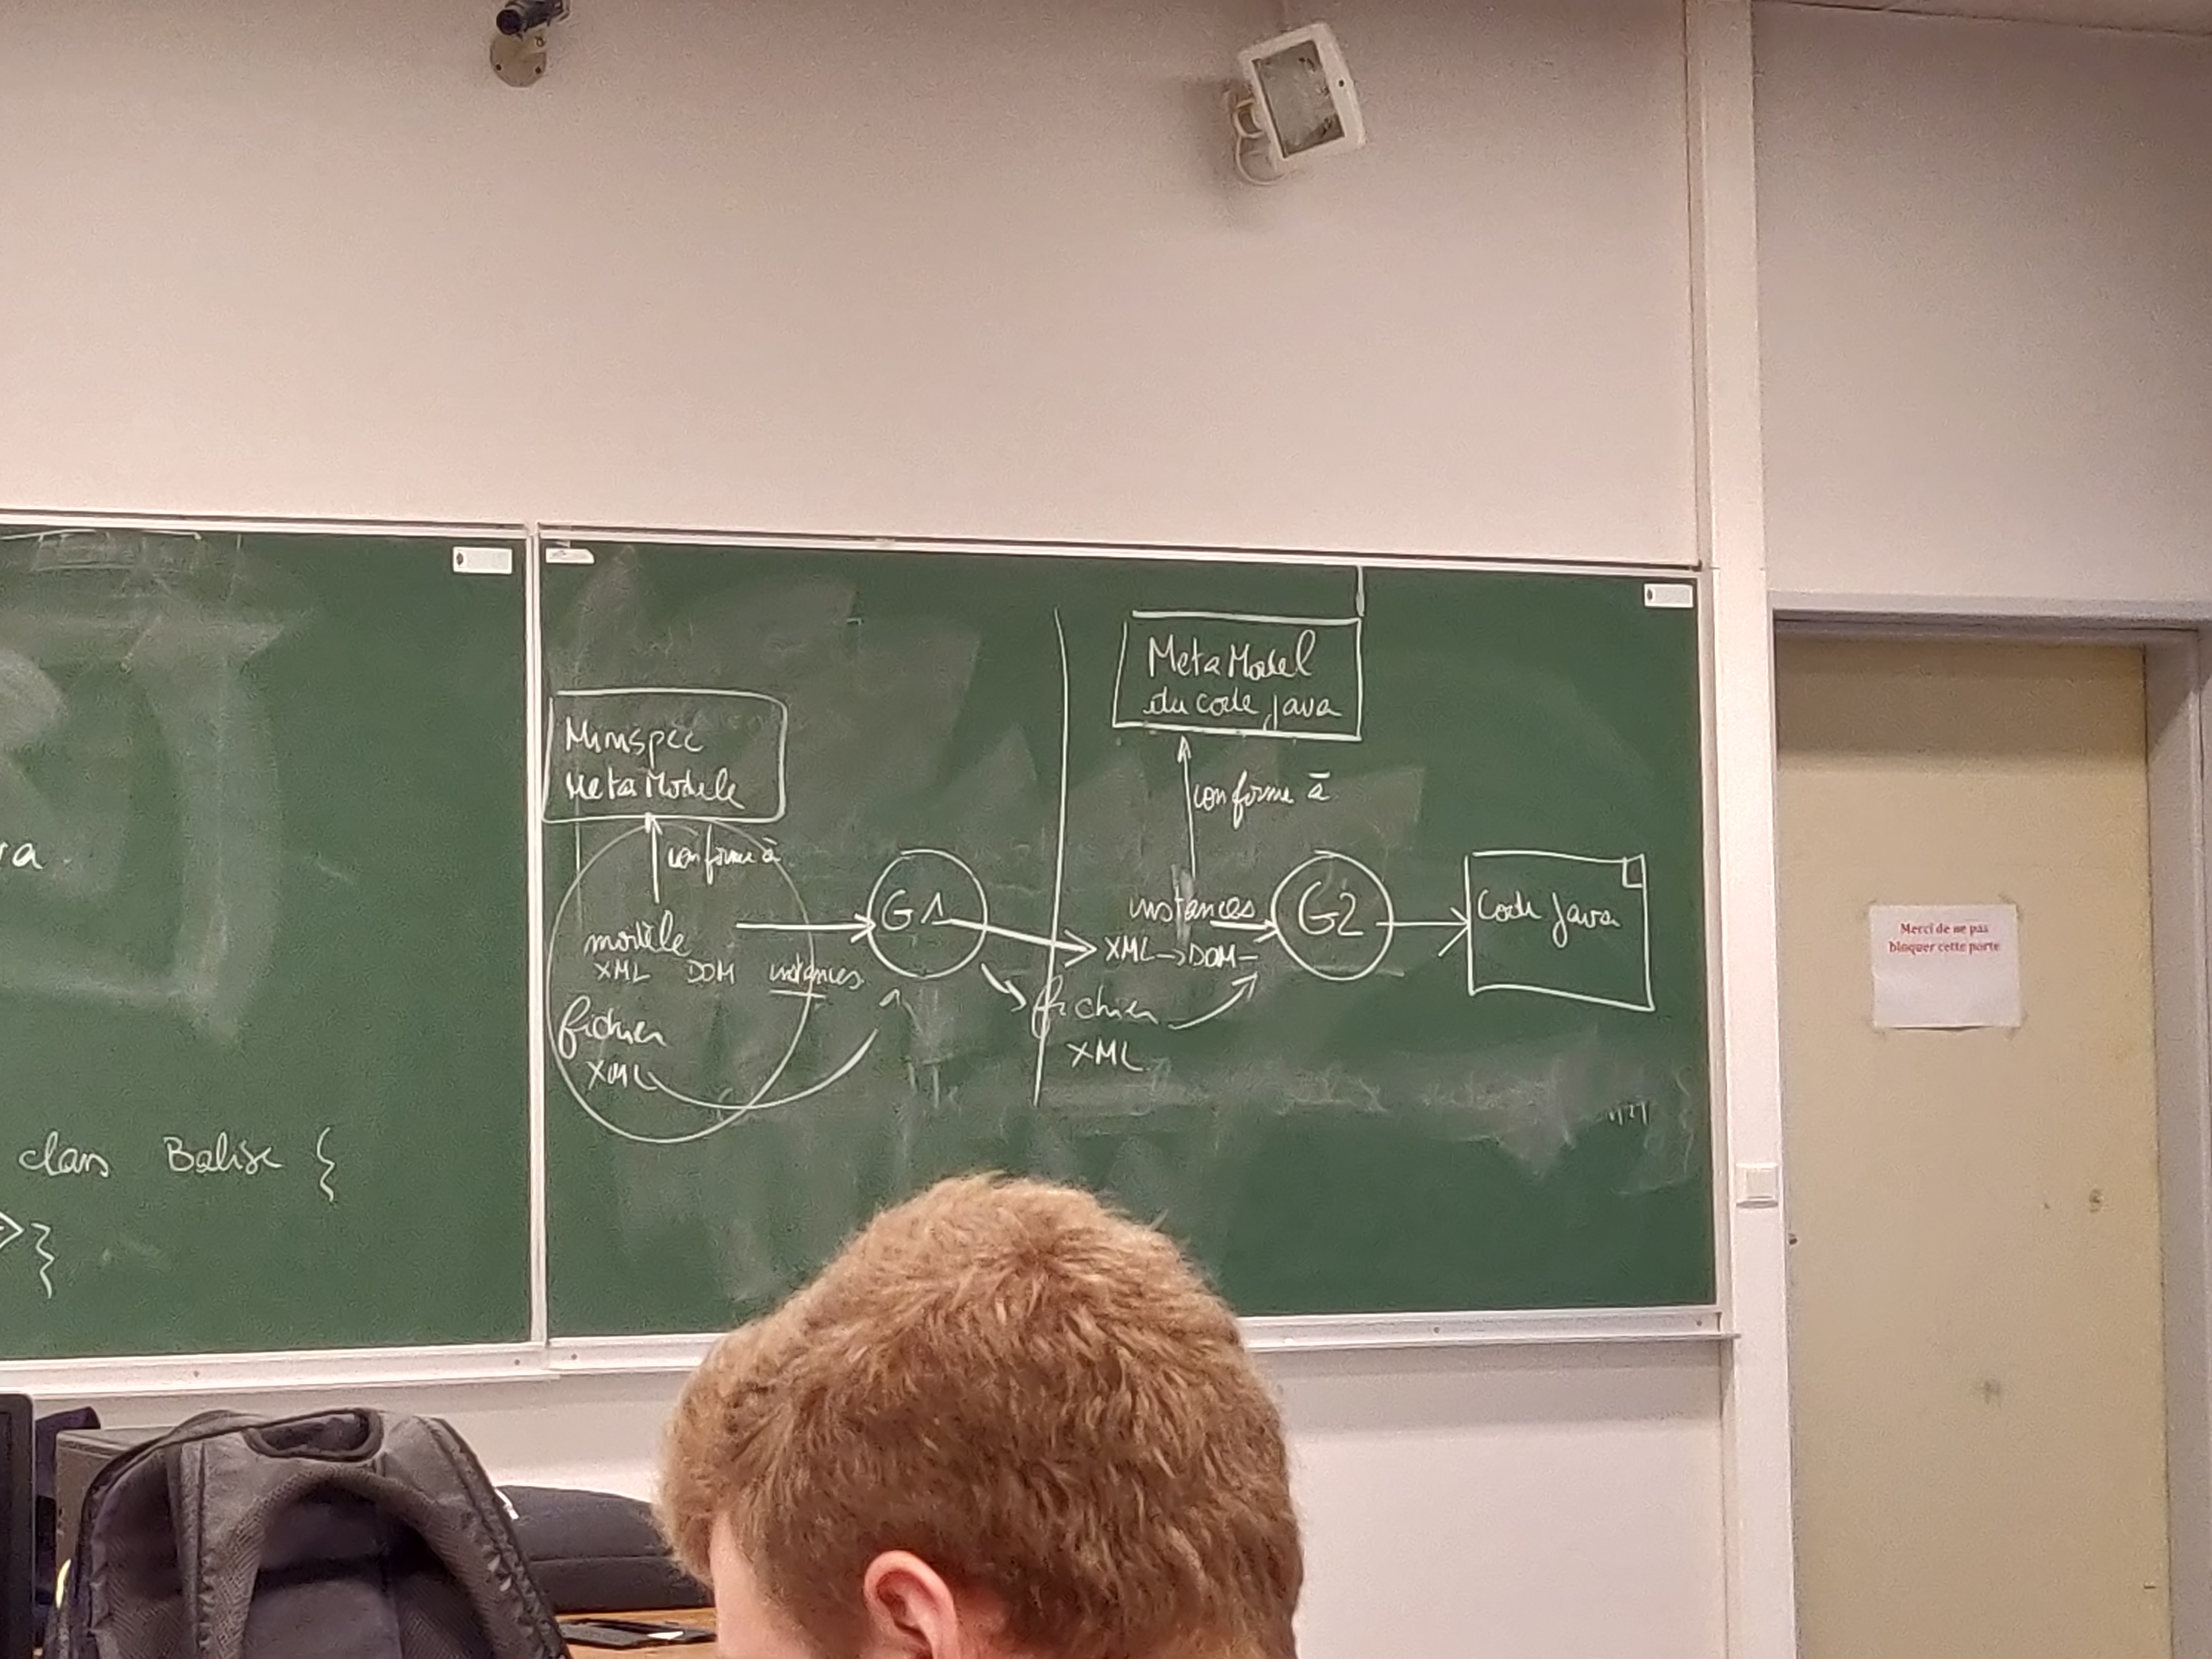 class Balise {
}
Minspec
MetaModele
conforme à
modèle
XML DOM instances
fichier
XML
G1
MetaModel
du code java
conforme à
instances
XML → DOM
fichier
XML
G2
Code Java
Merci de ne pas
bloquer cette porte